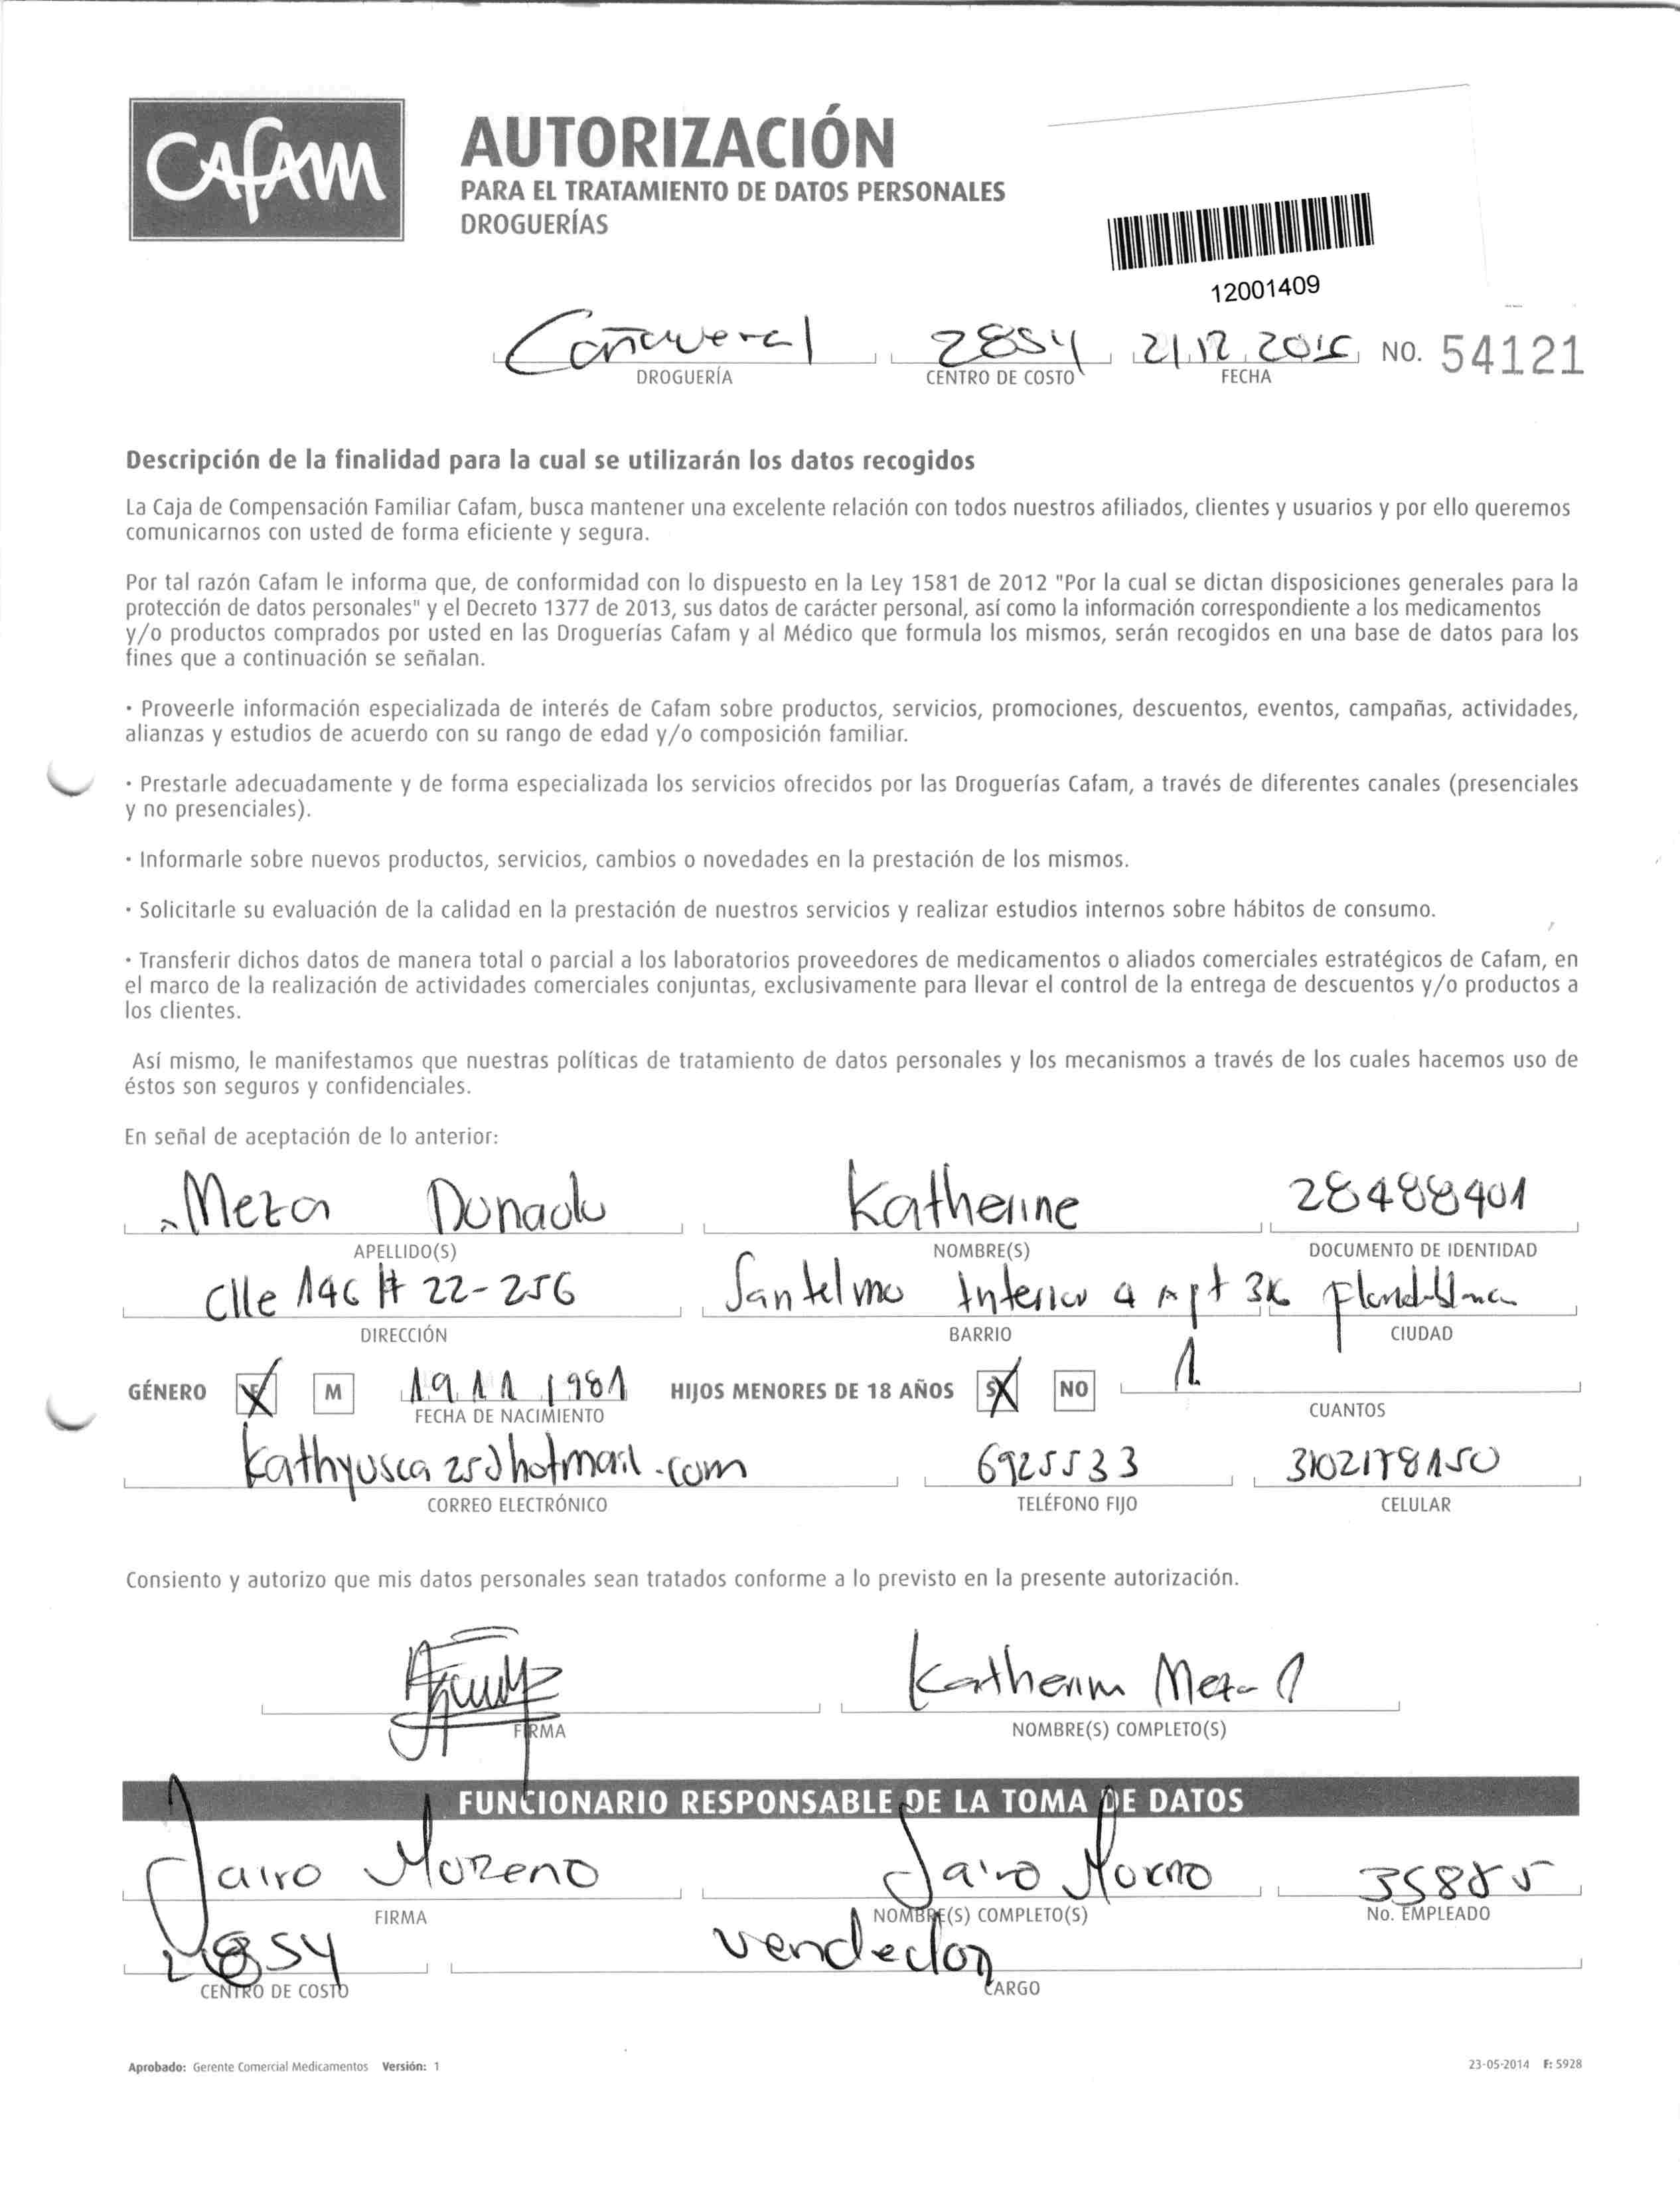 CAFAM
AUTORIZACIÓN
PARA EL TRATAMIENTO DE DATOS PERSONALES
DROGUERÍAS
12001409
Cañaveral 2854 21 12 NO. 54121
DROGUERÍA CENTRO DE COSTO FECHA
Descripción de la finalidad para la cual se utilizarán los datos recogidos
La Caja de Compensación Familiar Cafam, busca mantener una excelente relación con todos nuestros afiliados, clientes y usuarios y por ello queremos
comunicarnos con usted de forma eficiente y segura.
Por tal razón Cafam le informa que, de conformidad con lo dispuesto en la Ley 1581 de 2012 "Por la cual se dictan disposiciones generales para la
protección de datos personales" y el Decreto 1377 de 2013, sus datos de carácter personal, así como la información correspondiente a los medicamentos
y/o productos comprados por usted en las Droguerías Cafam y al Médico que formula los mismos, serán recogidos en una base de datos para los
fines que a continuación se señalan.
· Proveerle información especializada de interés de Cafam sobre productos, servicios, promociones, descuentos, eventos, campañas, actividades,
alianzas y estudios de acuerdo con su rango de edad y/o composición familiar.
· Prestarle adecuadamente y de forma especializada los servicios ofrecidos por las Droguerías Cafam, a través de diferentes canales (presenciales
y no presenciales).
· Informarle sobre nuevos productos, servicios, cambios o novedades en la prestación de los mismos.
· Solicitarle su evaluación de la calidad en la prestación de nuestros servicios y realizar estudios internos sobre hábitos de consumo.
· Transferir dichos datos de manera total o parcial a los laboratorios proveedores de medicamentos o aliados comerciales estratégicos de Cafam, en
el marco de la realización de actividades comerciales conjuntas, exclusivamente para llevar el control de la entrega de descuentos y/o productos a
los clientes.
Así mismo, le manifestamos que nuestras políticas de tratamiento de datos personales y los mecanismos a través de los cuales hacemos uso de
éstos son seguros y confidenciales.
En señal de aceptación de lo anterior:
Meza Donado Katherine 28488401
APELLIDO(S) NOMBRE(S) DOCUMENTO DE IDENTIDAD
Clle 146 # 22-256 Santelmo Interior 4 apt
DIRECCIÓN BARRIO CIUDAD
GÉNERO F M 19 11 1981 HIJOS MENORES DE 18 AÑOS SI NO 1
FECHA DE NACIMIENTO CUANTOS
6925533 3102178150
CORREO ELECTRÓNICO TELÉFONO FIJO CELULAR
Consiento y autorizo que mis datos personales sean tratados conforme a lo previsto en la presente autorización.
Katherin Meza D
FIRMA NOMBRE(S) COMPLETO(S)
FUNCIONARIO RESPONSABLE DE LA TOMA DE DATOS
Jairo Moreno Jairo Moreno 35885
FIRMA NOMBRE(S) COMPLETO(S) No. EMPLEADO
2854 vendedor
CENTRO DE COSTO CARGO
Aprobado: Gerente Comercial Medicamentos Versión: 1 23-05-2014 F: 5928